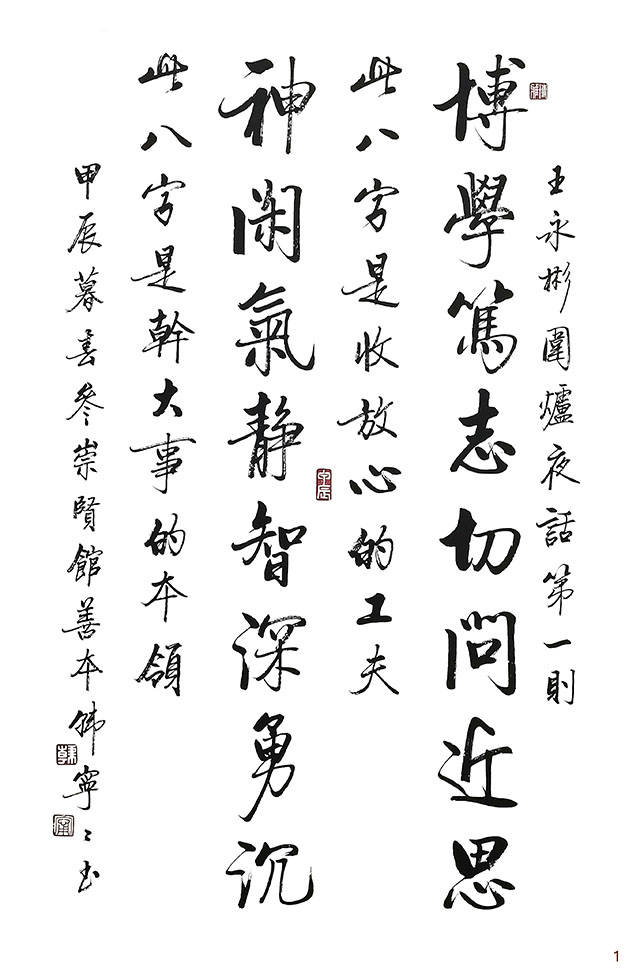 王永彬圍爐夜話第一則
博學篤志切問近思
此八字是收放心的工夫
神閑氣静智深勇沉
此八字是幹大事的本領
甲辰暮春參崇賢館善本韩寧〻书
1